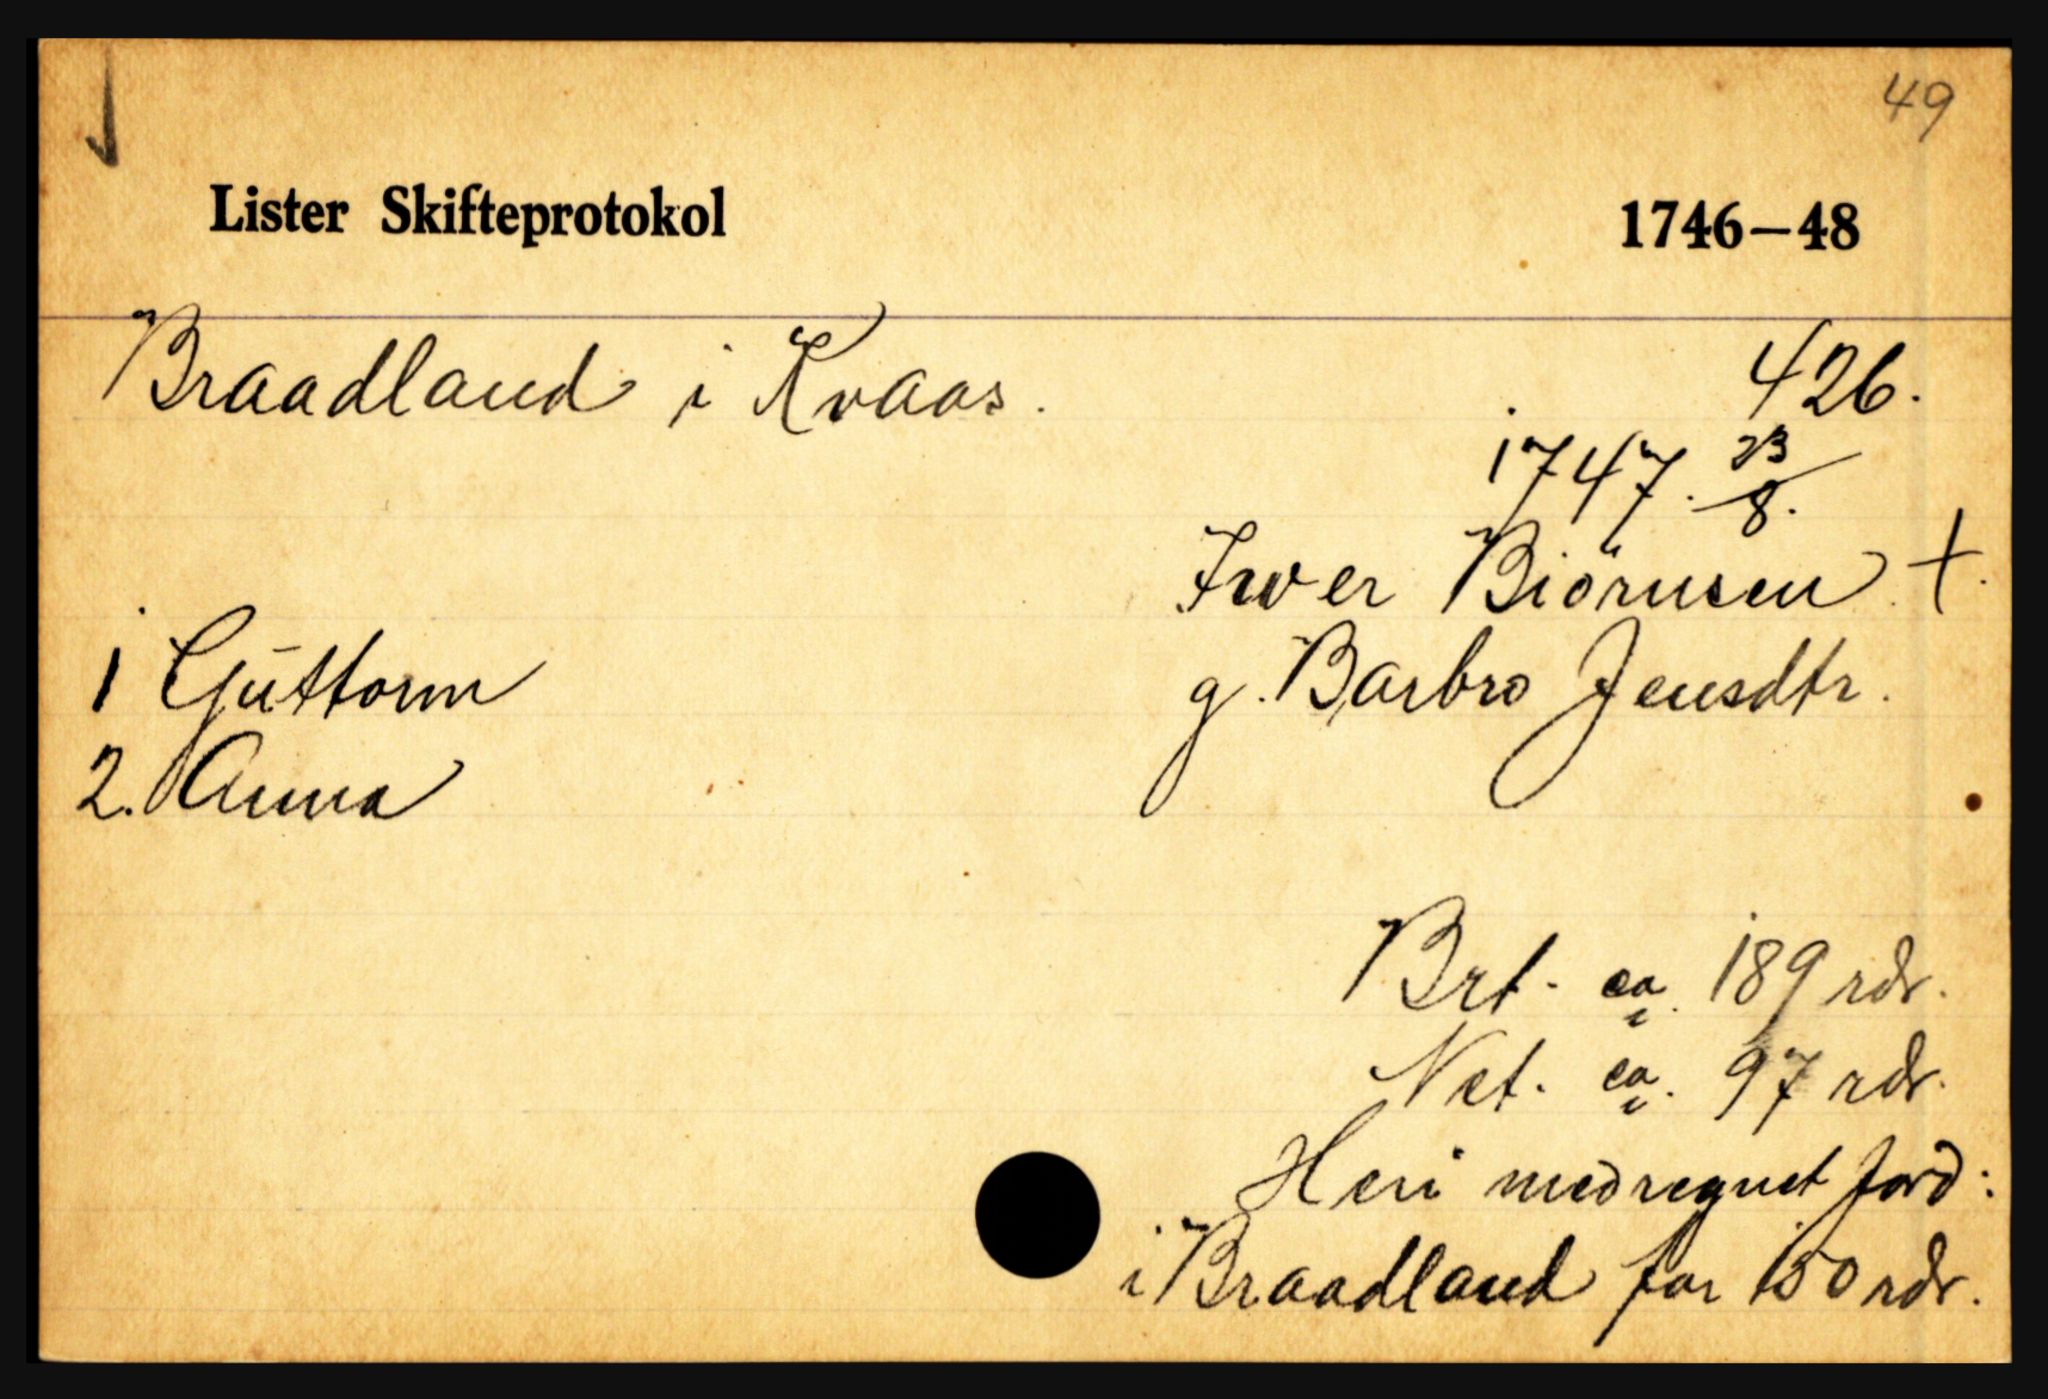 49
Lister Skifteprotokol 1746–48
Braadland i Kvaas. 426.
1747. 23/8.
Iver Biörnsen †.
1 Guttorm g. Barbro Jensdtr.
2. Anna
Brt. ca. 189 rdr.
Net. ca. 97 rdr.
Heri medregnet jord:
i Braadland for 150 rdr.